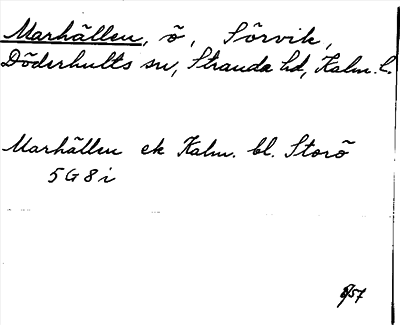 Marhällen, ö, Sörvik,
Döderhults sn, Stranda hd, Kalm. l.
Marhällen ek Kalm. bl. Storö
5G8i